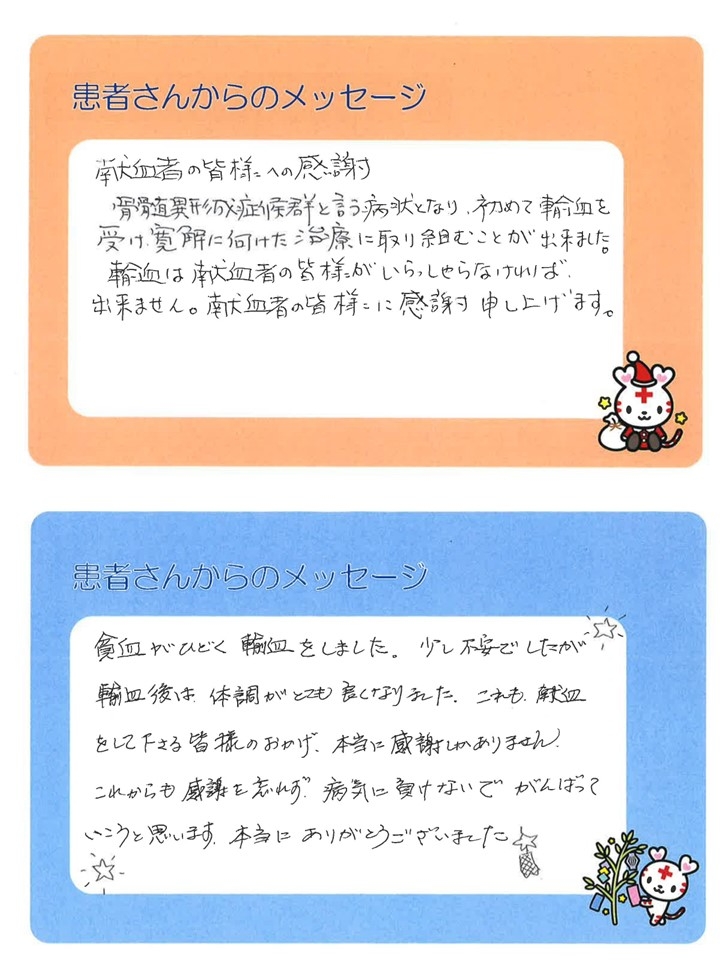 患者さんからのメッセージ
献血者の皆様への感謝
骨髄異形成症候群と言う病状となり、初めて輸血を
受け、寛解に向けた治療に取り組むことが出来ました。
輸血は献血者の皆様がいらっしゃらなければ、
出来ません。献血者の皆様に感謝申し上げます。
患者さんからのメッセージ
貧血がひどく輸血をしました。少し不安でしたが
輸血後は、体調がとても良くなりました。これも、献血
をして下さる皆様のおかげ、本当に感謝しかありません。
これからも感謝を忘れず、病気に負けないでがんばって
いこうと思います。本当にありがとうございました